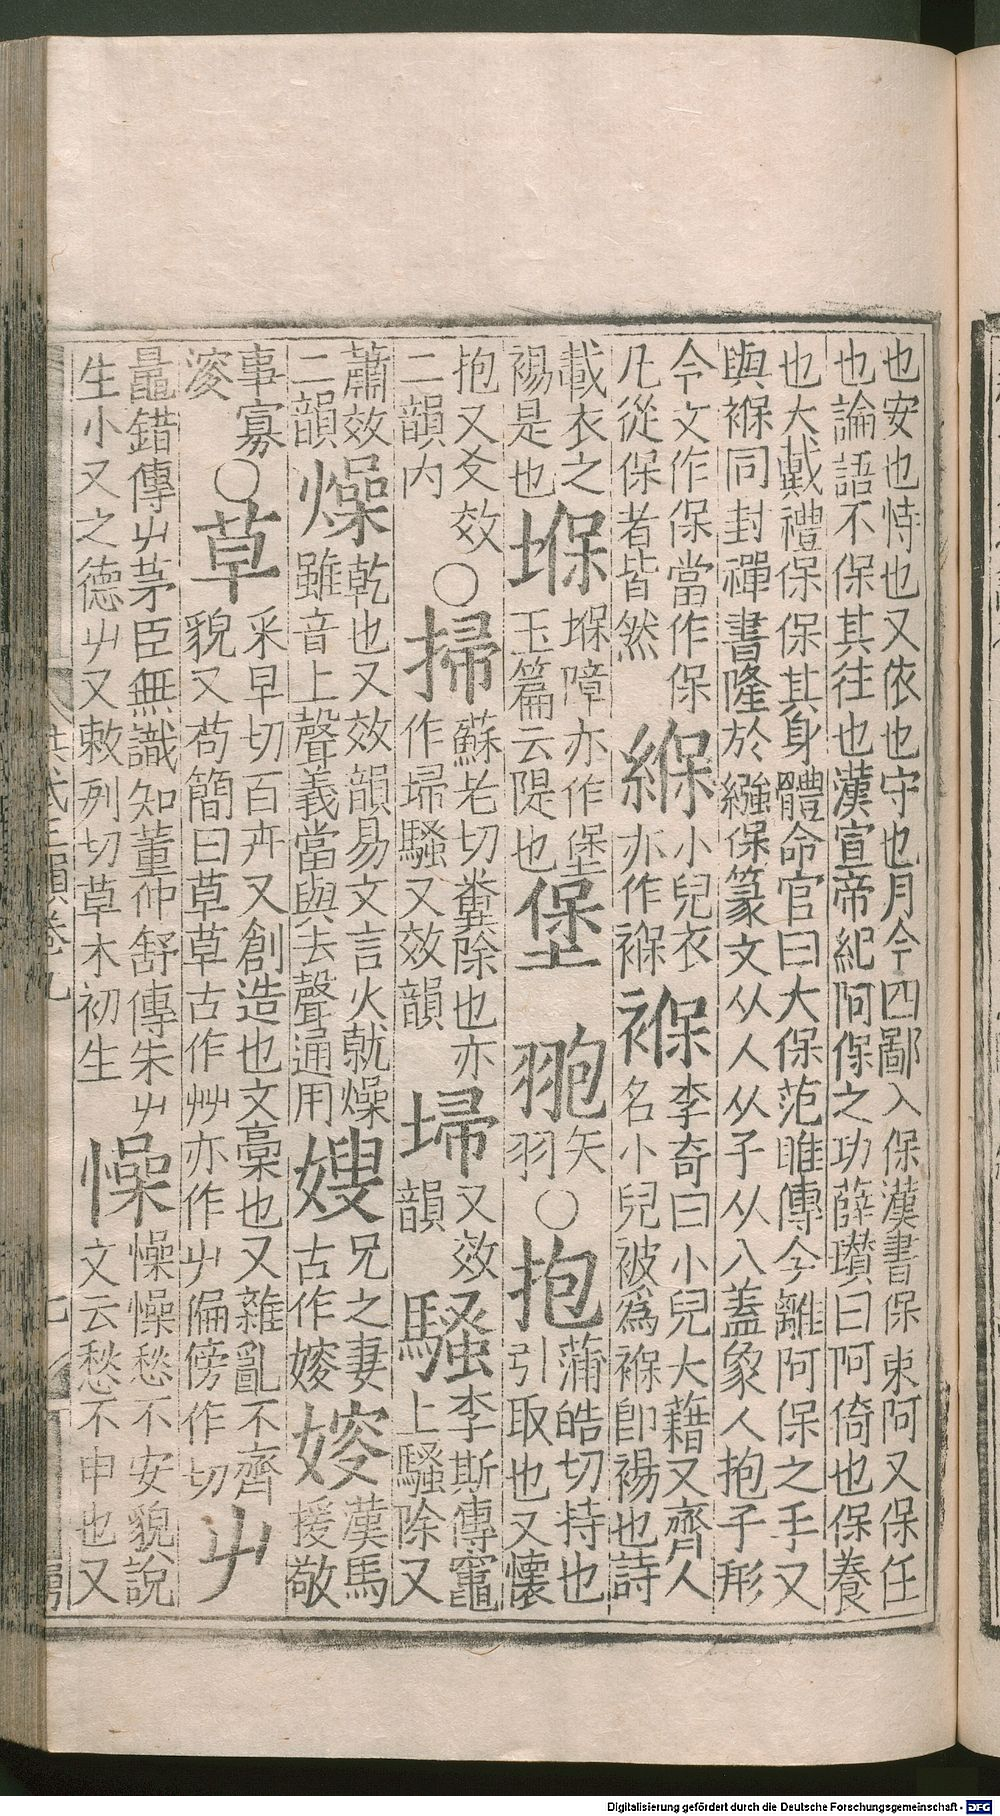 也安也恃也又依也守也月令四鄙入保漢書保束阿又保任
也論語不保其往也漢宣帝紀阿保之功薛瓚曰阿倚也保養
也大戴禮保保其身體命官曰大保范雎傳今離阿保之手又
與褓同封禪書隆於繈保篆文从人从子从八蓋象人抱子形
今文作保當作保
凡從保者皆然
緥
小兒衣
亦作褓
褓
李奇曰小兒大藉又齊人
名小兒被為褓卽裼也詩
載衣之
裼是也
堢
堢障亦作堡
玉篇云隄也
堡
䎂
矢
羽
○
抱
蒲皓切持也
引取也又懷
抱又爻效
二韻内
○
掃
蘇老切糞除也亦
作埽騷又效韻
埽
又效
韻
騷
李斯傳竈
上騷除又
蕭效
二韻
燥
乾也又效韻易文言火就燥
雖音上聲義當與去聲通用
嫂
兄之妻
古作㛮
㛮
漢馬
援敬
事寡
㛮
○
草
采早切百卉又創造也文藁也又雜亂不齊
貌又苟簡曰草草古作艸亦作屮偏傍作切
屮
鼂錯傳屮茅臣無識知董仲舒傳朱屮
生小又之德屮又敕列切草木初生
懆
懆懆愁不安貌說
文云愁不申也又
洪武正韻卷九
七
Digitalisierung gefördert durch die Deutsche Forschungsgemeinschaft - DFG